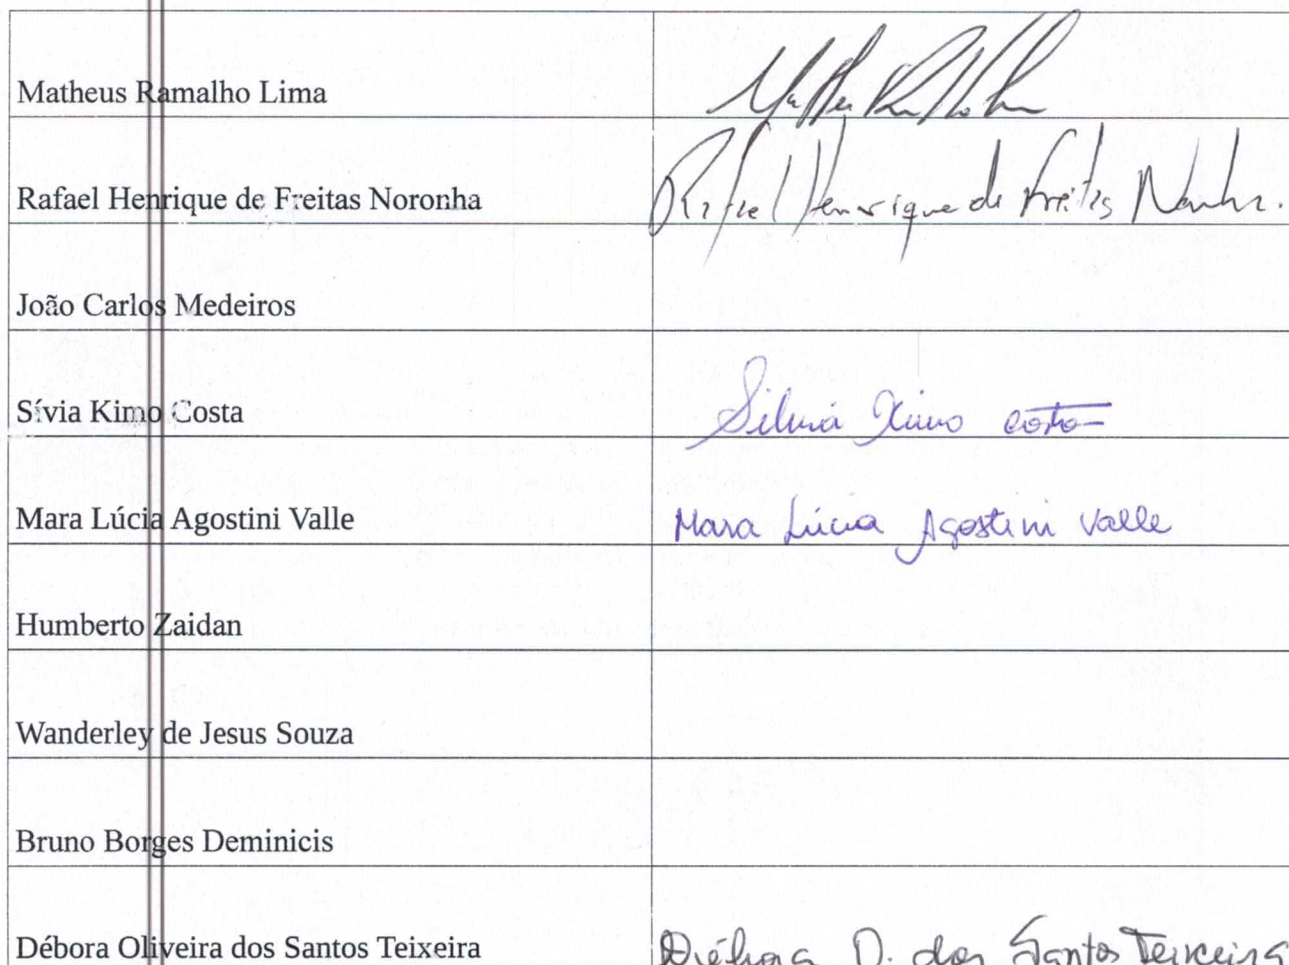 Matheus Ramalho Lima
Rafael Henrique de Freitas Noronha Rafael Henrique de Freitas Noronha.
João Carlos Medeiros
Sívia Kimo Costa Silvia Kimo Costa
Mara Lúcia Agostini Valle Mara Lúcia Agostini Valle
Humberto Zaidan
Wanderley de Jesus Souza
Bruno Borges Deminicis
Débora Oliveira dos Santos Teixeira Débora O. dos Santos Teixeira